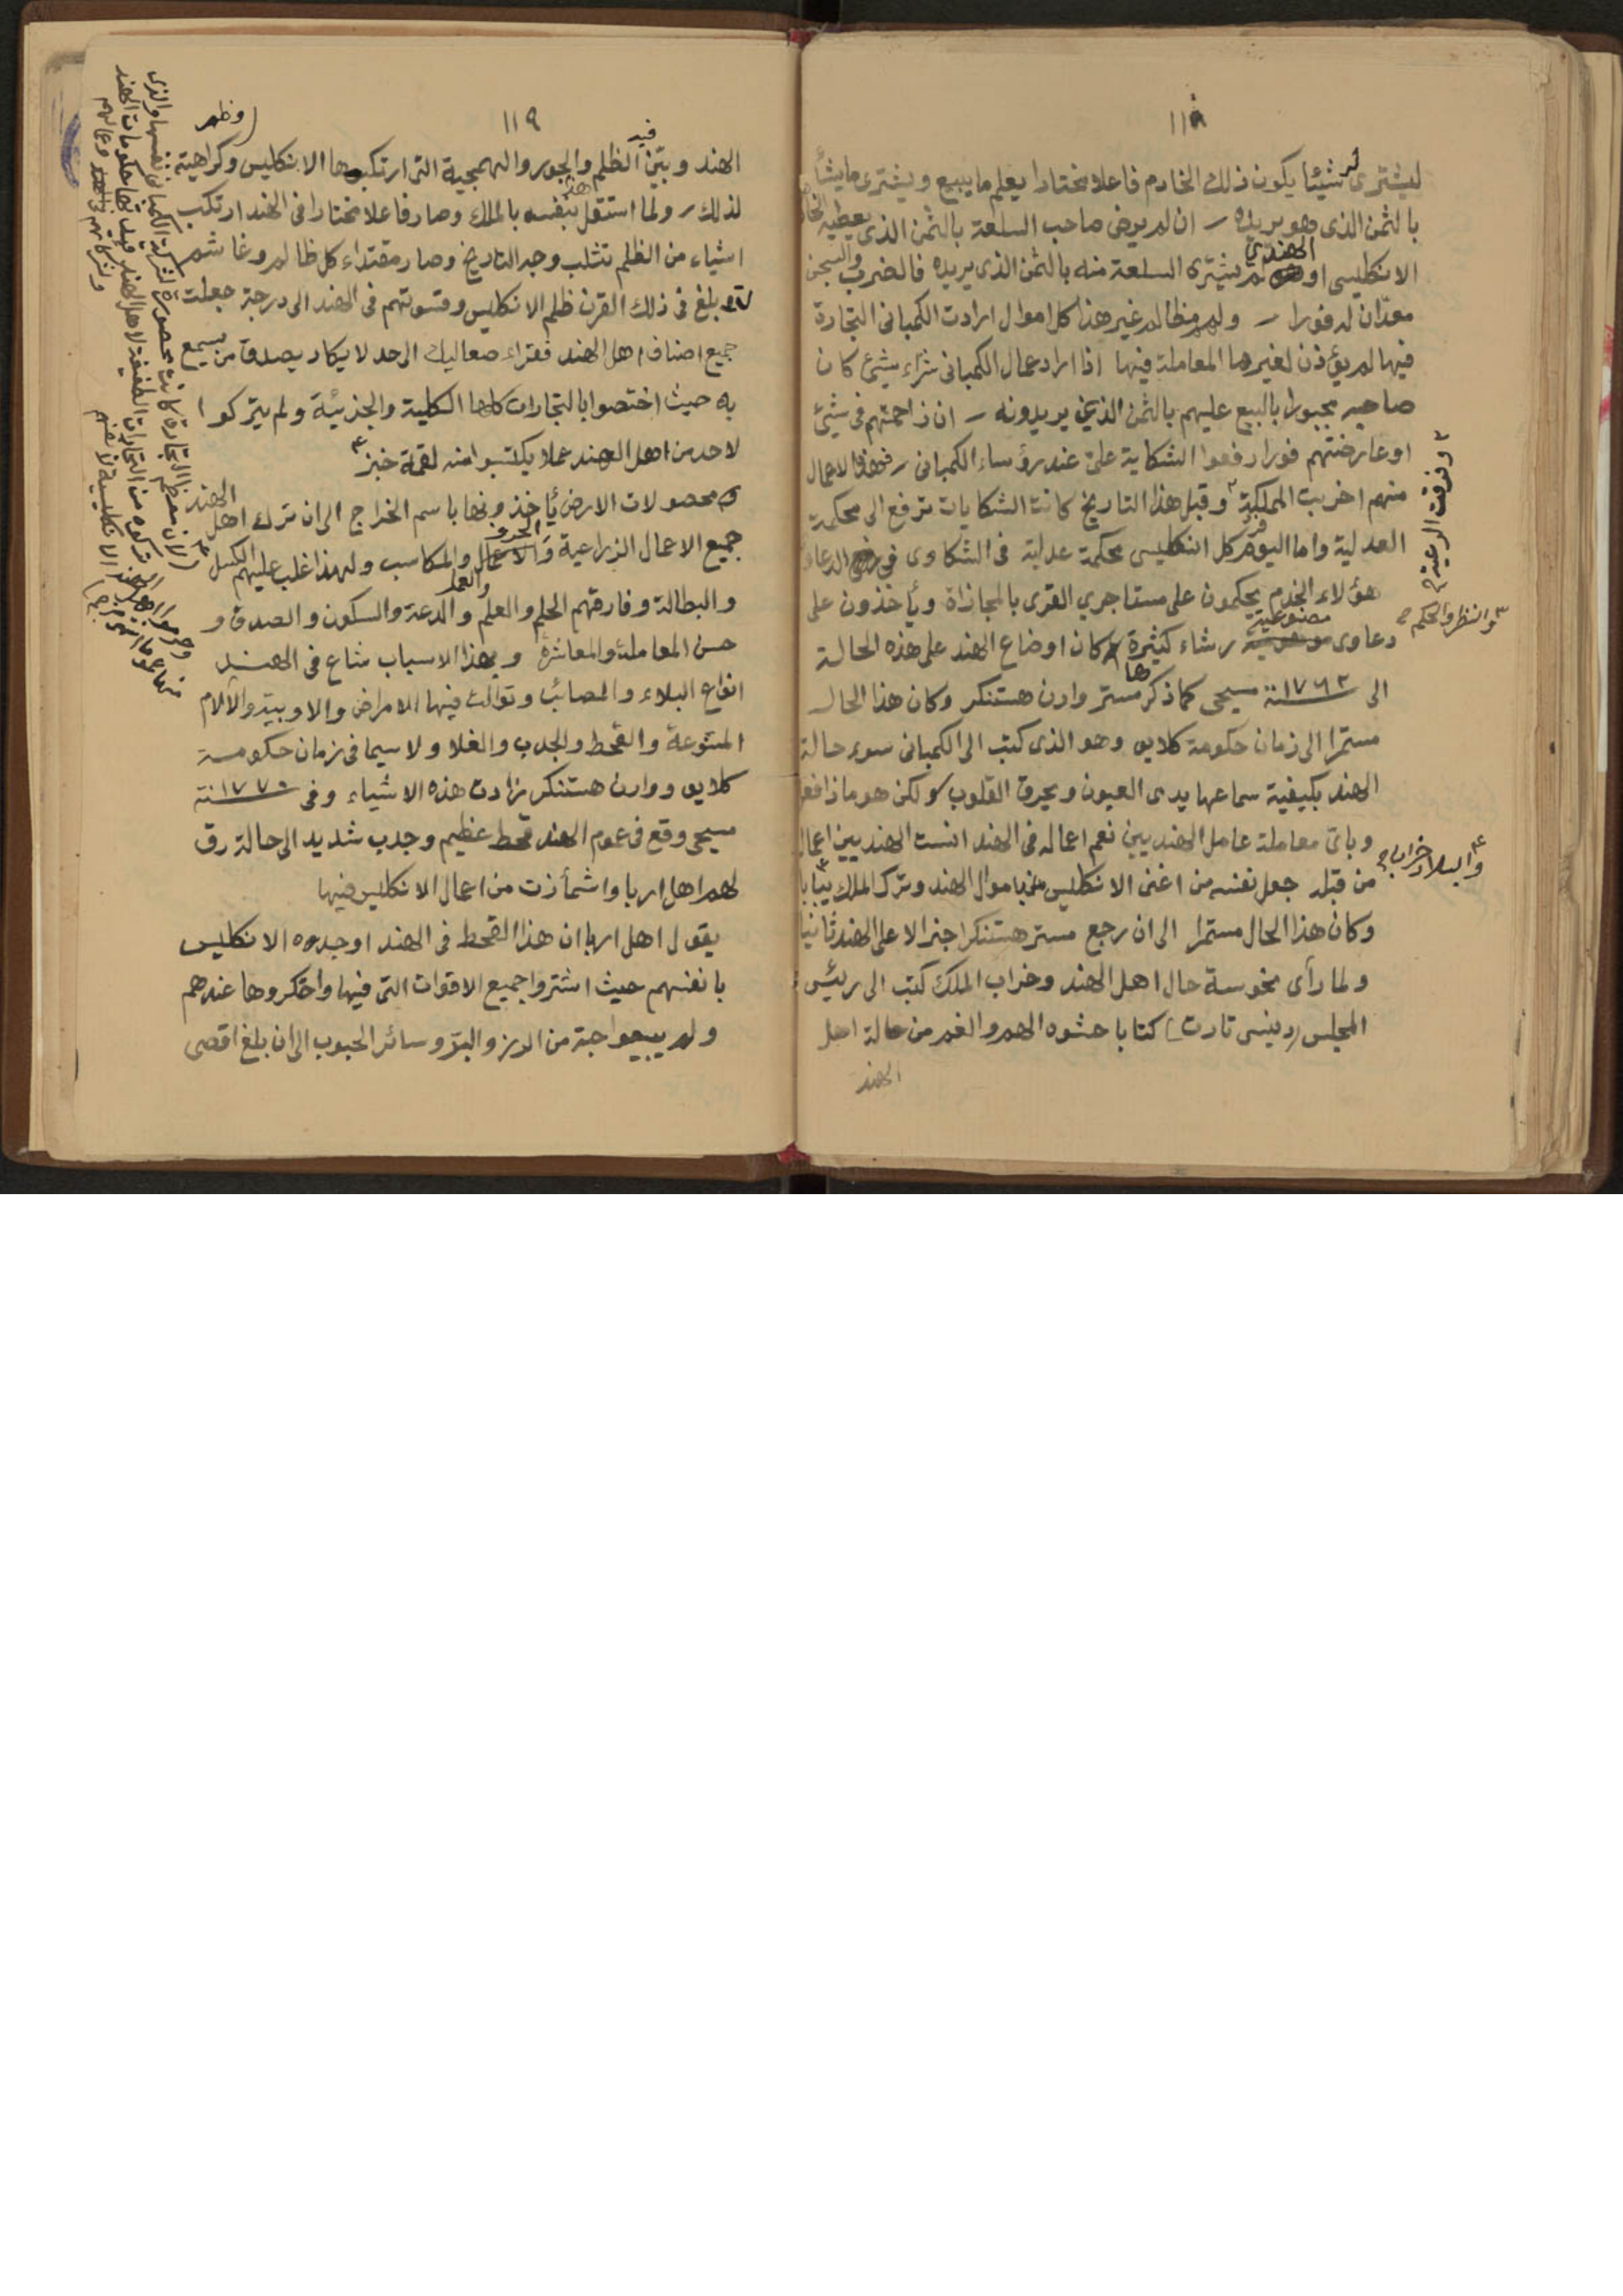 ١١٨
ليشترى له شيئا يكون ذلك الخادم فاعلا مختارا يعلم ما يبيع ويشترى ما يشأ
بالثمن الذى هو يريده ـ ان لم يرض صاحب السلعة بالثمن الذى يعطيه
الانكليسى او الهندى لم يشترى السلعة منه بالثمن الذى يريده فالضرب والسجن
معدّان له فورا ـ ولهم مظالم غير هذا كل اموال ارادت الكمبانى التجارة
فيها لم يؤذن لغيرها المعاملة فيها اذا اراد عمال الكمبانى شراء شيئ كان
صاحبه مجبورا بالبيع عليهم بالثمن الذى يريدونه ـ ان زاحمتهم فى شيئ
او عارضتهم فورا رفعوا الشكاية على عند رؤساء الكمبانى ـ فهذه الاعمال
منهم اخربت المملكة ٢ وقبل هذا التاريخ كانت الشكايات ترفع الى محكمة
العدلية واما اليوم كل انكليسى محكمة عدلية فى الشكاوى فى الدعاوى
هؤلاء الخدم يحكمون على مستاجرى القرى بالمجازاة ويأخذون على
دعاوى مصنوعية رشاء كثيرة كان اوضاع الهند على هذه الحالة
الى سنة ١٧٦٢ مسيحى كما ذكرها مستر وارن هستنكر وكان هذا الحال
مستمرا الى زمان حكومة كلايو وهو الذى كتب الى الكمبانى سوء حالة
الهند بكيفية سماعها يدمى العيون ويحرق القلوب ولكن هو ماذا فعل
وباى معاملة عامل الهنديين نعم اعماله فى الهند انست الهنديين اعمال
من قبله جعل نفسه من اغنى الانكليس باموال الهند وترك الملك يبابا
وكان هذا الحال مستمرا الى ان رجع مستر هستنكر جنرالا على الهند ثانيا
ولما رأى نحوسة حال اهل الهند وخراب الملك كتب الى رئيس
المجلس (دينسى تارت) كتابا حشوه الهم والغم من حالة اهل
الهند
٢ وفرقت الرعية
٣ والنظر والحكم
والبلاد خرابا
١١٩
(وظهر
الهند وبيّن فيه الظلم والجور والهمجية التى ارتكبوها الانكليس وكراهيته
لذلك ـ ولما استقل هذا بنفسه بالملك وصار فاعلا مختارا فى الهند ارتكب
اشياء من الظلم تثلب وجه التاريخ وصار مقتداء كل ظالم وغاشم
بلغ فى ذلك القرن ظلم الانكليس وقسوتهم فى الهند الى درجة جعلت
جميع اصناف اهل الهند فقراء صعاليك الى حد لا يكاد يصدق من يسمع
به حيث اختصوا بالتجارات كلها الكلية والجزئية ولم يتركوا
لاحد من اهل الهند عملا يكتسبوا منه لقمة خبز
محصولات الارض يأخذونها باسم الخراج الى ان ترك اهل الهند
جميع الاعمال الزراعية والحرف والمكاسب ولهذا غلب عليهم الكسل
والبطالة وفارقهم الحلم والعلم والعمل والدعة والسكون والصدق و
حسن المعاملة والمعاشرة وبهذا الاسباب شاع فى الهند
انواع البلاء والمصائب وتوالت فيها الامراض والاوبية والآلام
المتنوعة والقحط والجدب والغلا ولا سيما فى زمان حكومة
كلايو ووارن هستنكر زادت هذه الاشياء وفى سنة ١٧٧٠
مسيحى وقع فى عموم الهند قحط عظيم وجدب شديد الى حالة رق
لهم اهل اربا واشمأزت من اعمال الانكليس فيها
يقول اهل اربا ان هذا القحط فى الهند اوجدوه الانكليس
بانفسهم حيث اشتروا جميع الاقوات التى فيها واحتكروها عندهم
ولم يبيعوا حبة من الارز والبرّ وسائر الحبوب الى ان بلغ اقصى
(لان معظم التجارة كانت محصورة لشركة الكمبانى نفسها والذى
تركوه من التجارات الطفيفة لاهل الهند